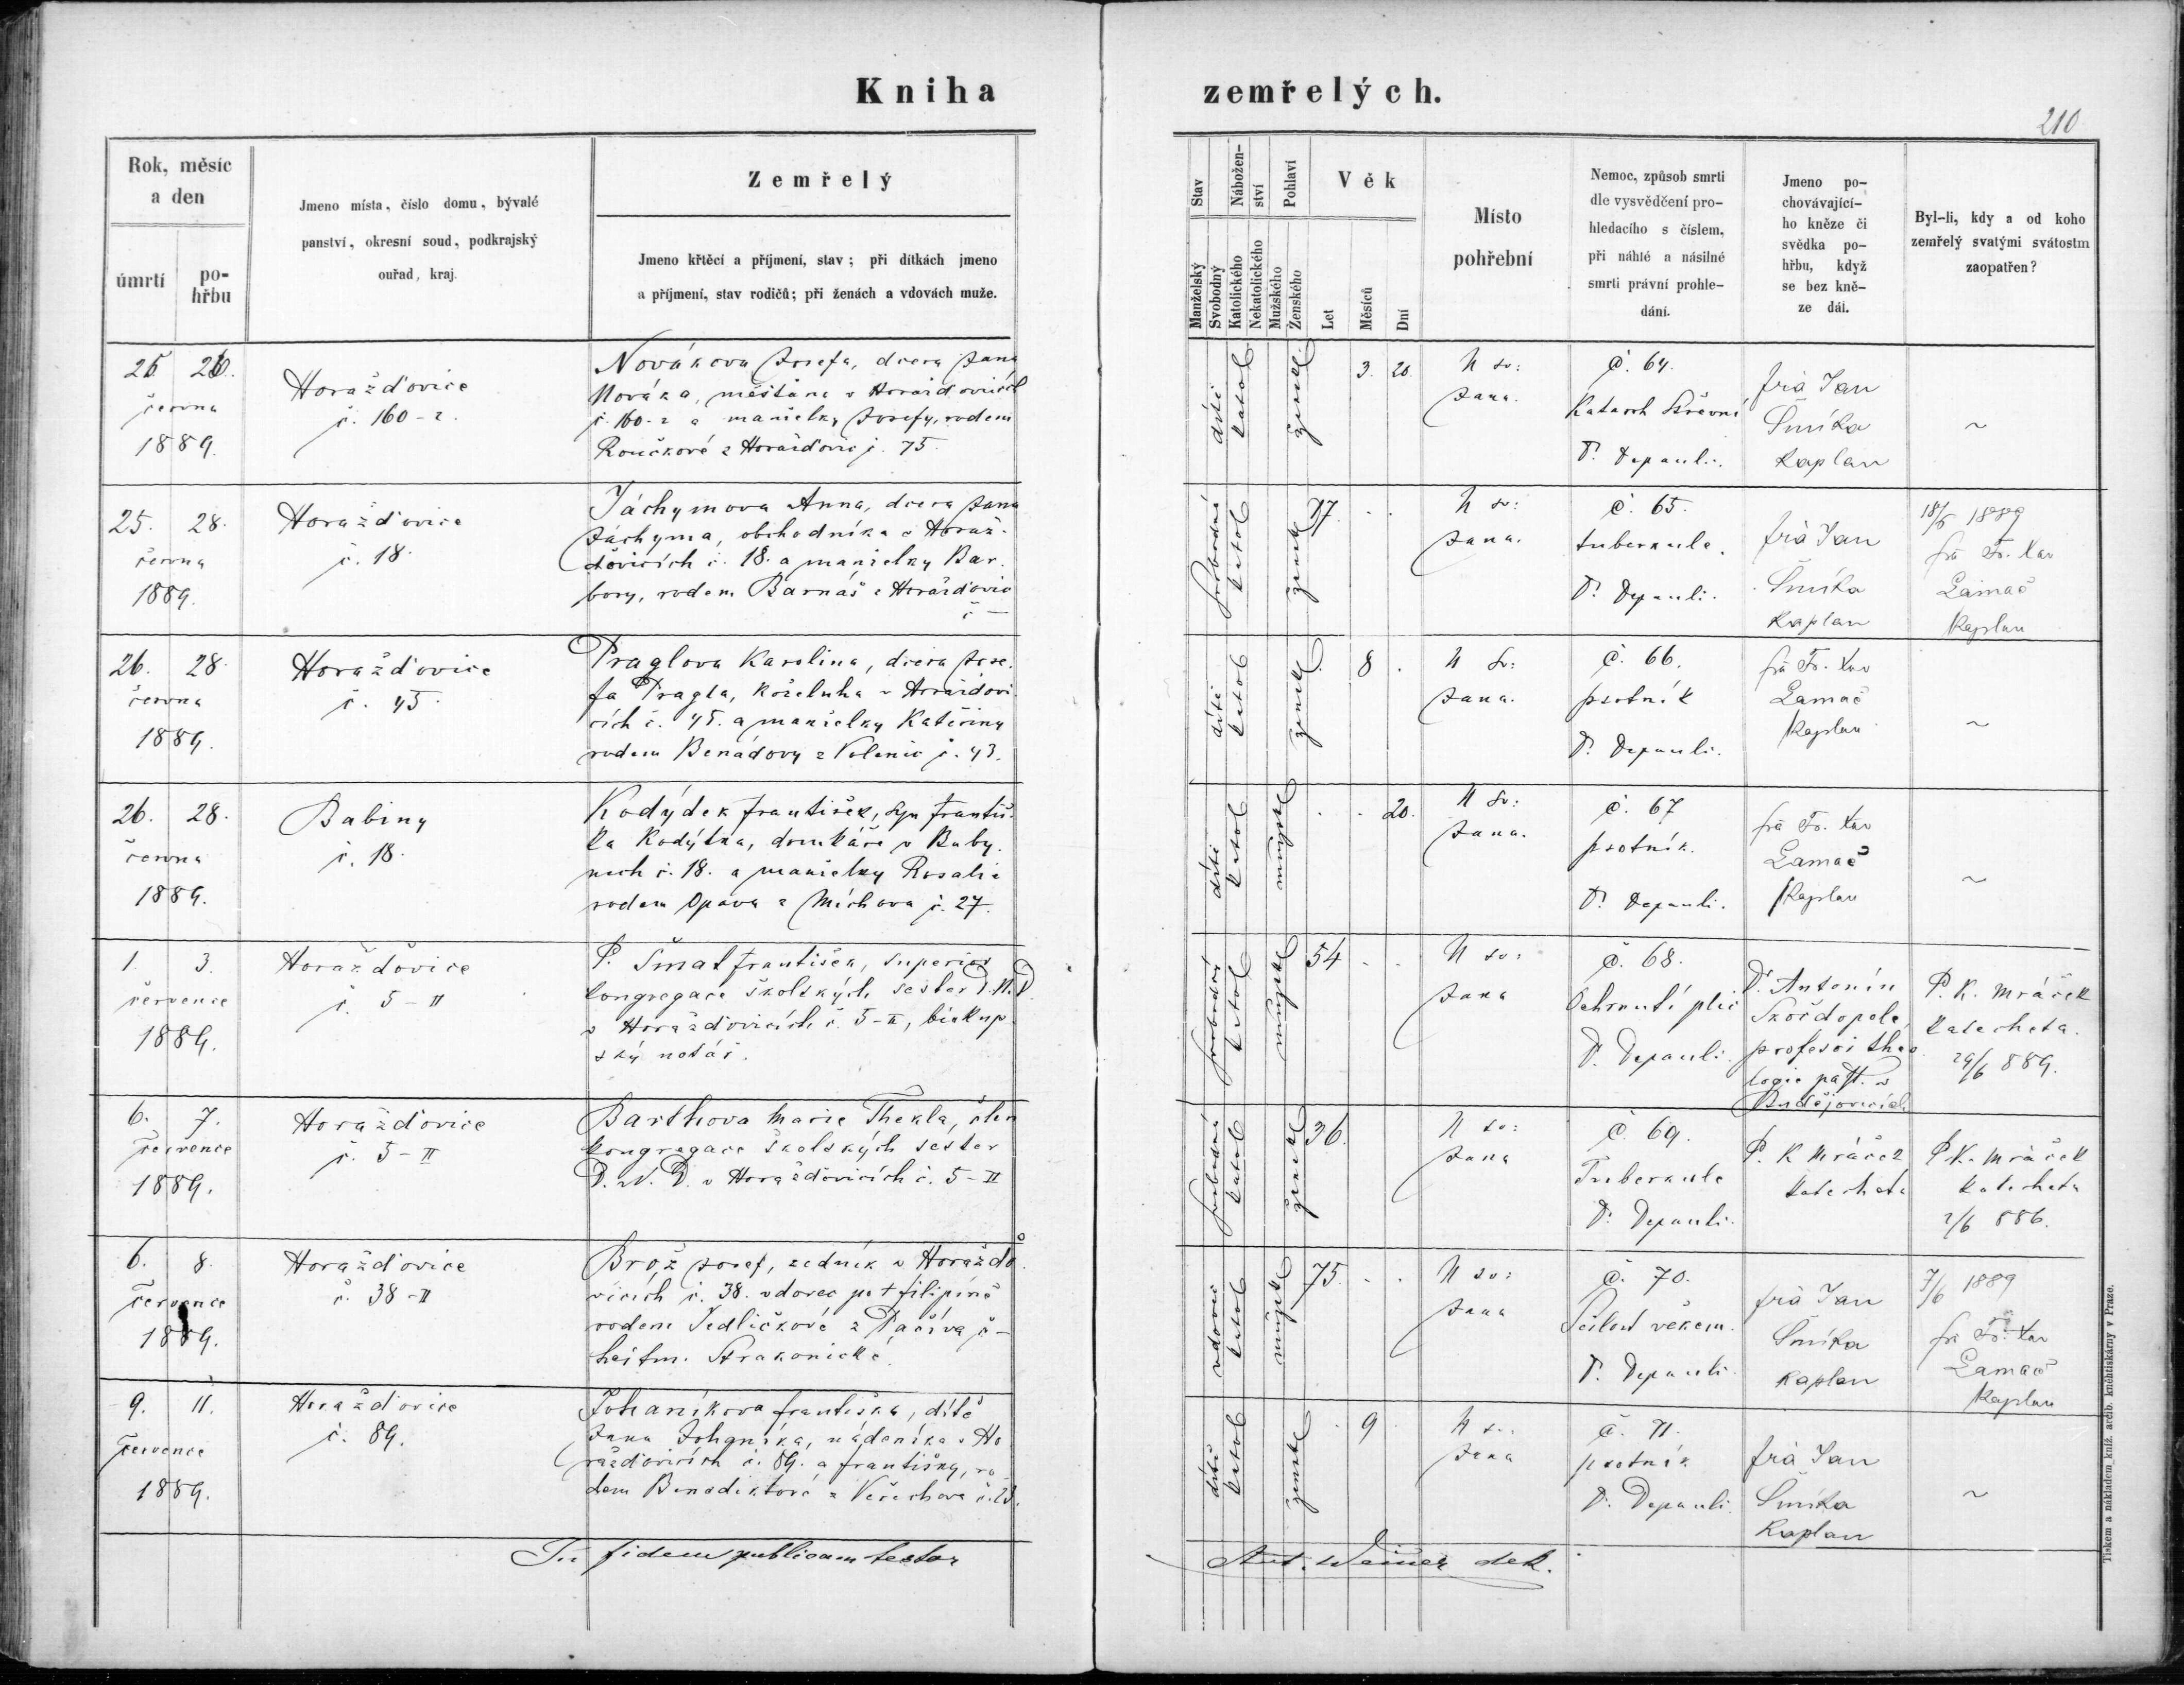 Kniha zemřelých.
210
Rok, měsíc
a den
úmrtí
po-
hřbu
Jmeno místa, číslo domu, bývalé
panství, okresní soud, podkrajský
ouřad, kraj.
Zemřelý
Jmeno křtěcí a příjmení, stav; při dítkách jmeno
a příjmení, stav rodičů; při ženách a vdovách muže.
Stav
Manželský
Svobodný
Nábožen-
ství
Katolického
Nekatolického
Pohlaví
Mužského
Ženského
Věk
Let
Měsíců
Dní
Místo
pohřební
Nemoc, způsob smrti
dle vysvědčení pro-
hledacího s číslem,
při náhlé a násilné
smrti právní prohle-
dání.
Jmeno po-
chovávající-
ho kněze či
svědka po-
hřbu, když
se bez kně-
ze dál.
Byl-li, kdy a od koho
zemřelý svatými svátostm
zaopatřen?
25 26.
června
1889.
Horažďovice
č. 160-2.
Novákova Josefa, dcera Jana
Nováka, měštana v Horažďovicích
č. 160-2 a manželky Josefy, rodem
Roučkové z Horažďovic č. 75.
dítě
katol
žensk
3. 20.
U sv:
Jana.
č. 64.
Katarrh střevní
D. Depauli.
frà Jan
Šmíka
kaplan
~
25. 28.
června
1889.
Horažďovice
č. 18.
Jáchymova Anna, dcera Jana
Jáchyma, obchodníka v Horaž-
ďovicích č. 18. a manželky Bar-
bory, rodem Barnáš z Horažďovic
č —
svobodná
katol
žensk
17. . .
U sv:
Jana.
č. 65.
tuberkule.
D. Depauli.
frà Jan
Šmíka
kaplan
18/6 1889
frà Fr. Xav
Lamač
kaplan
26. 28.
června
1889.
Horažďovice
č. 45.
Praglova Karolina, dcera Jose-
fa Pragla, koželuha v Horažďovi-
cích č. 45. a manželky Kateřiny
rodem Benádovy z Volenic č. 43.
dítě
katol
žensk
. 8 .
U sv:
Jana.
č. 66.
psotník
D. Depauli.
frà Fr. Xav
Lamač
kaplan
~
26. 28.
června
1889.
Babiny
č. 18.
Kodýdek František, syn Františ-
ka Kodýdka, domkáře v Baby-
nech č. 18. a manželky Rosalie
rodem Opava z Míchova č. 27.
dítě
katol
mužské
. . 20.
U sv:
Jana.
č. 67
psotník.
D. Depauli.
frà Fr. Xav
Lamač
kaplan
~
1. 3.
července
1889.
Horažďovice
č. 5-II
P. Šmat František, superior
kongregace školských sester D.N.D.
v Horažďovicích č. 5-II, biskup-
ský notář.
svobodný
katol
mužské
54 . .
U sv:
Jana
č. 68.
Ochrnutí plic
D. Depauli
D. Antonín
Skočdopole,
profesor theo-
logie past. v
Budějovicích
P. K. Mráček
katecheta.
29/6 889.
6. 7.
července
1889.
Horažďovice
č. 5-II
Barthova Marie Thekla, člen
kongregace školských sester
D. N. D. v Horažďovicích č. 5-II
svobodná
katol
žensk
36.
U sv:
Jana
č. 69.
Tuberkule
D. Depauli.
P. K Mráček
katecheta
P. K. Mráček
katecheta
2/6 886.
6. 8.
července
1889.
Horažďovice
č. 38-II
Brož Josef, zedník v Horaždo-
vicích č. 38. vdovec po † Filipíně
rodem Jedličkové z Pačíva č-
hejtm. Strakonické.
vdovec
katol
mužské
75. . .
U sv:
Jana
č. 70.
Sešlost věkem.
D. Depauli
frà Jan
Šmíka
kaplan
7/6 1889
frà Fr. Xav
Lamač
kaplan
9. 11.
července
1889.
Horažďovice
č. 89.
Johaníkova Františka, dítě
Jana Johaníka, nádeníka v Ho-
ražďovicích č. 89. a Františky, ro-
dem Benediktové z Veřechova č. 23.
dítě
katol
žensk
. 9
U sv:
Jana
č. 71.
psotník
D. Depauli
frà Jan
Šmíka
kaplan
~
In fidem publicam testor
Ant. Weiner dek.
Tiskem a nákladem kníž. arcib. knihtiskárny v Praze.